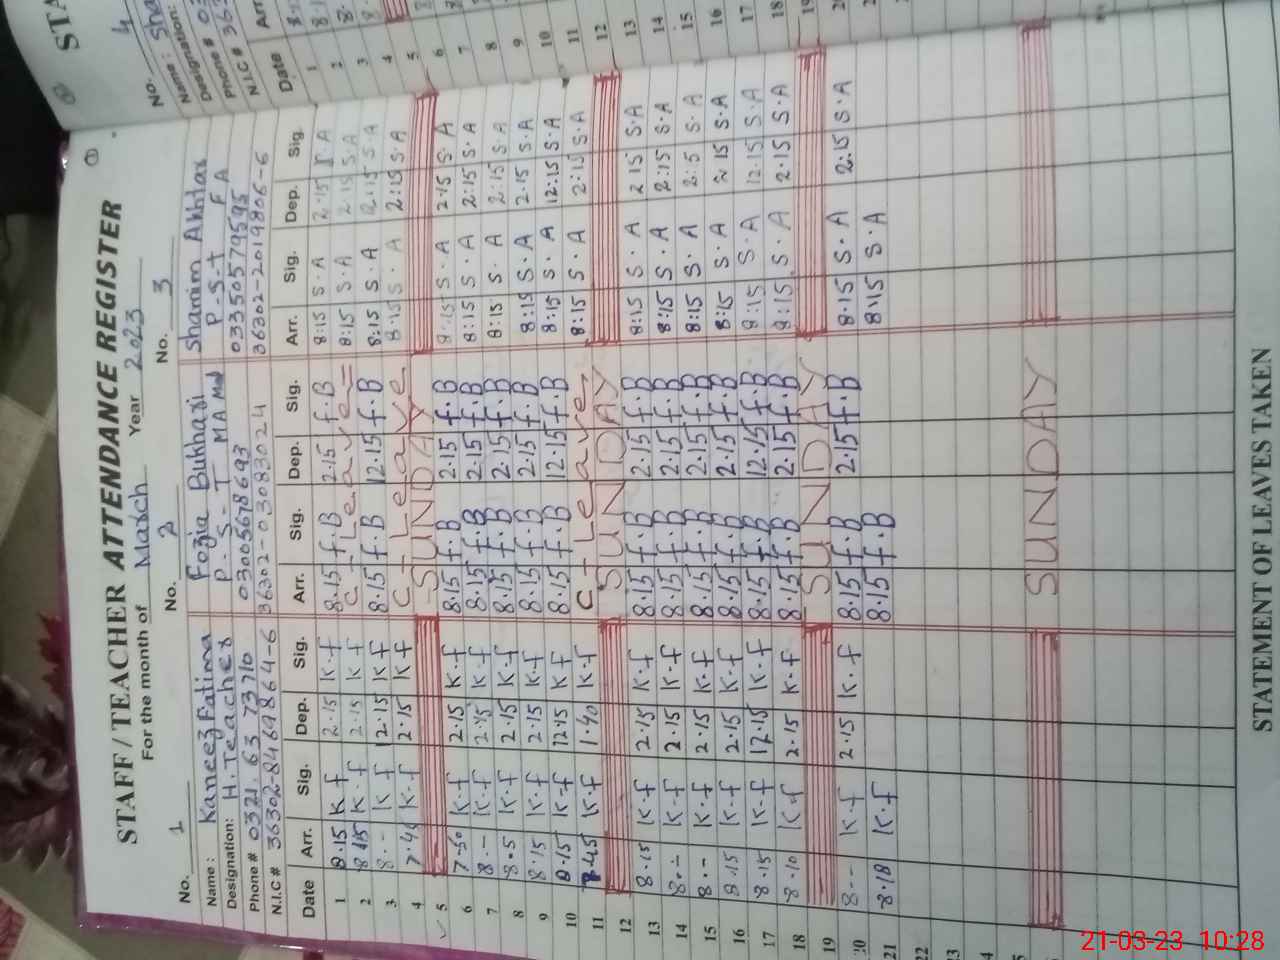 STAFF / TEACHER ATTENDANCE REGISTER
For the month of March Year 2023
No. 1 No. 2 No. 3
Name: Kaneez Fatima Fozia Bukhari Shamim Akhtar
Designation: H. Teacher P. S. T MA P.S.t F A
Phone # 0321. 63 73710 03005678693 03350579595
N.I.C # 36302-8464864-6 36302-0308302 4 36302-2019806-6
Date Arr. Sig. Dep. Sig. Arr. Sig. Dep. Sig. Arr. Sig. Dep. Sig.
1 8.15 K f 2.15 K.f 8.15 f.B 2.15 f.B 8:15 S.A 2.15 S.A
2 8.15 K.f 2.15 K f C-Leave= 8:15 S.A 2.15 S.A
3 8.-- K f 12.15 K f 8.15 f.B 12.15 f.B 8:15 S.A S.A
4 K.f 2.15 K f C-Leave 8:15 S.A 2:15 S.A
5 SUNDAY
6 7.50 K.f 2.15 K.f 8.15 f.B 2.15 f.B 8:15 S.A 2.15 S.A
7 8.-- K.f 2.15 K.f 8.15 f.B 2.15 f.B 8:15 S.A 2:15 S.A
8 8.5 K.f 2.15 K.f 8.15 f.B 2.15 f.B 8:15 S.A 2:15 S.A
9 8.15 K.f 2.15 K.f 8.15 f.B 2.15 f.B 8:15 S.A 2.15 S.A
10 8.15 K.f 12.15 K f 8.15 f.B 12.15 f.B 8:15 S.A 12:15 S.A
11 K.f 1.40 K.f C-Leave, 8:15 S.A 2:15 S.A
12 SUNDAY
13 8.15 K.f 2.15 K.f 8.15 f.B 2.15 f.B 8:15 S.A 2 15 S.A
14 8.-- K.f 2.15 K.f 8.15 f.B 2.15 f.B 8:15 S.A 2:15 S.A
15 8.-- K.f 2.15 K.f 8.15 f.B 2.15 f.B 8:15 S.A 2:5 S.A
16 8.15 K.f 2.15 K.f 8.15 f.B 2.15 f.B 8:15 S.A 2 15 S.A
17 8.15 K.f 12.15 K.f 8.15 f.B 12.15 f.B 8:15 S.A 12:15 S.A
18 8.10 K.f 2.15 K.f 8.15 f.B 2.15 f.B 8:15 S.A 2:15 S.A
19 SUNDAY
20 8.-- K.f 2.15 K.f 8.15 f.B 2.15 f.B 8.15 S.A 2:15 S.A
21 8.18 K.f 8.15 f.B 8:15 S.A
22
23
24
SUNDAY
STATEMENT OF LEAVES TAKEN
STA
No. 4
Name: Sha
Designation:
Phone # 03
N.I.C # 36
Date Arr
1
2
3
4
5
6
7
8
9
10
11
12
13
14
15
16
17
18
19
20
21
21-03-23 10:28